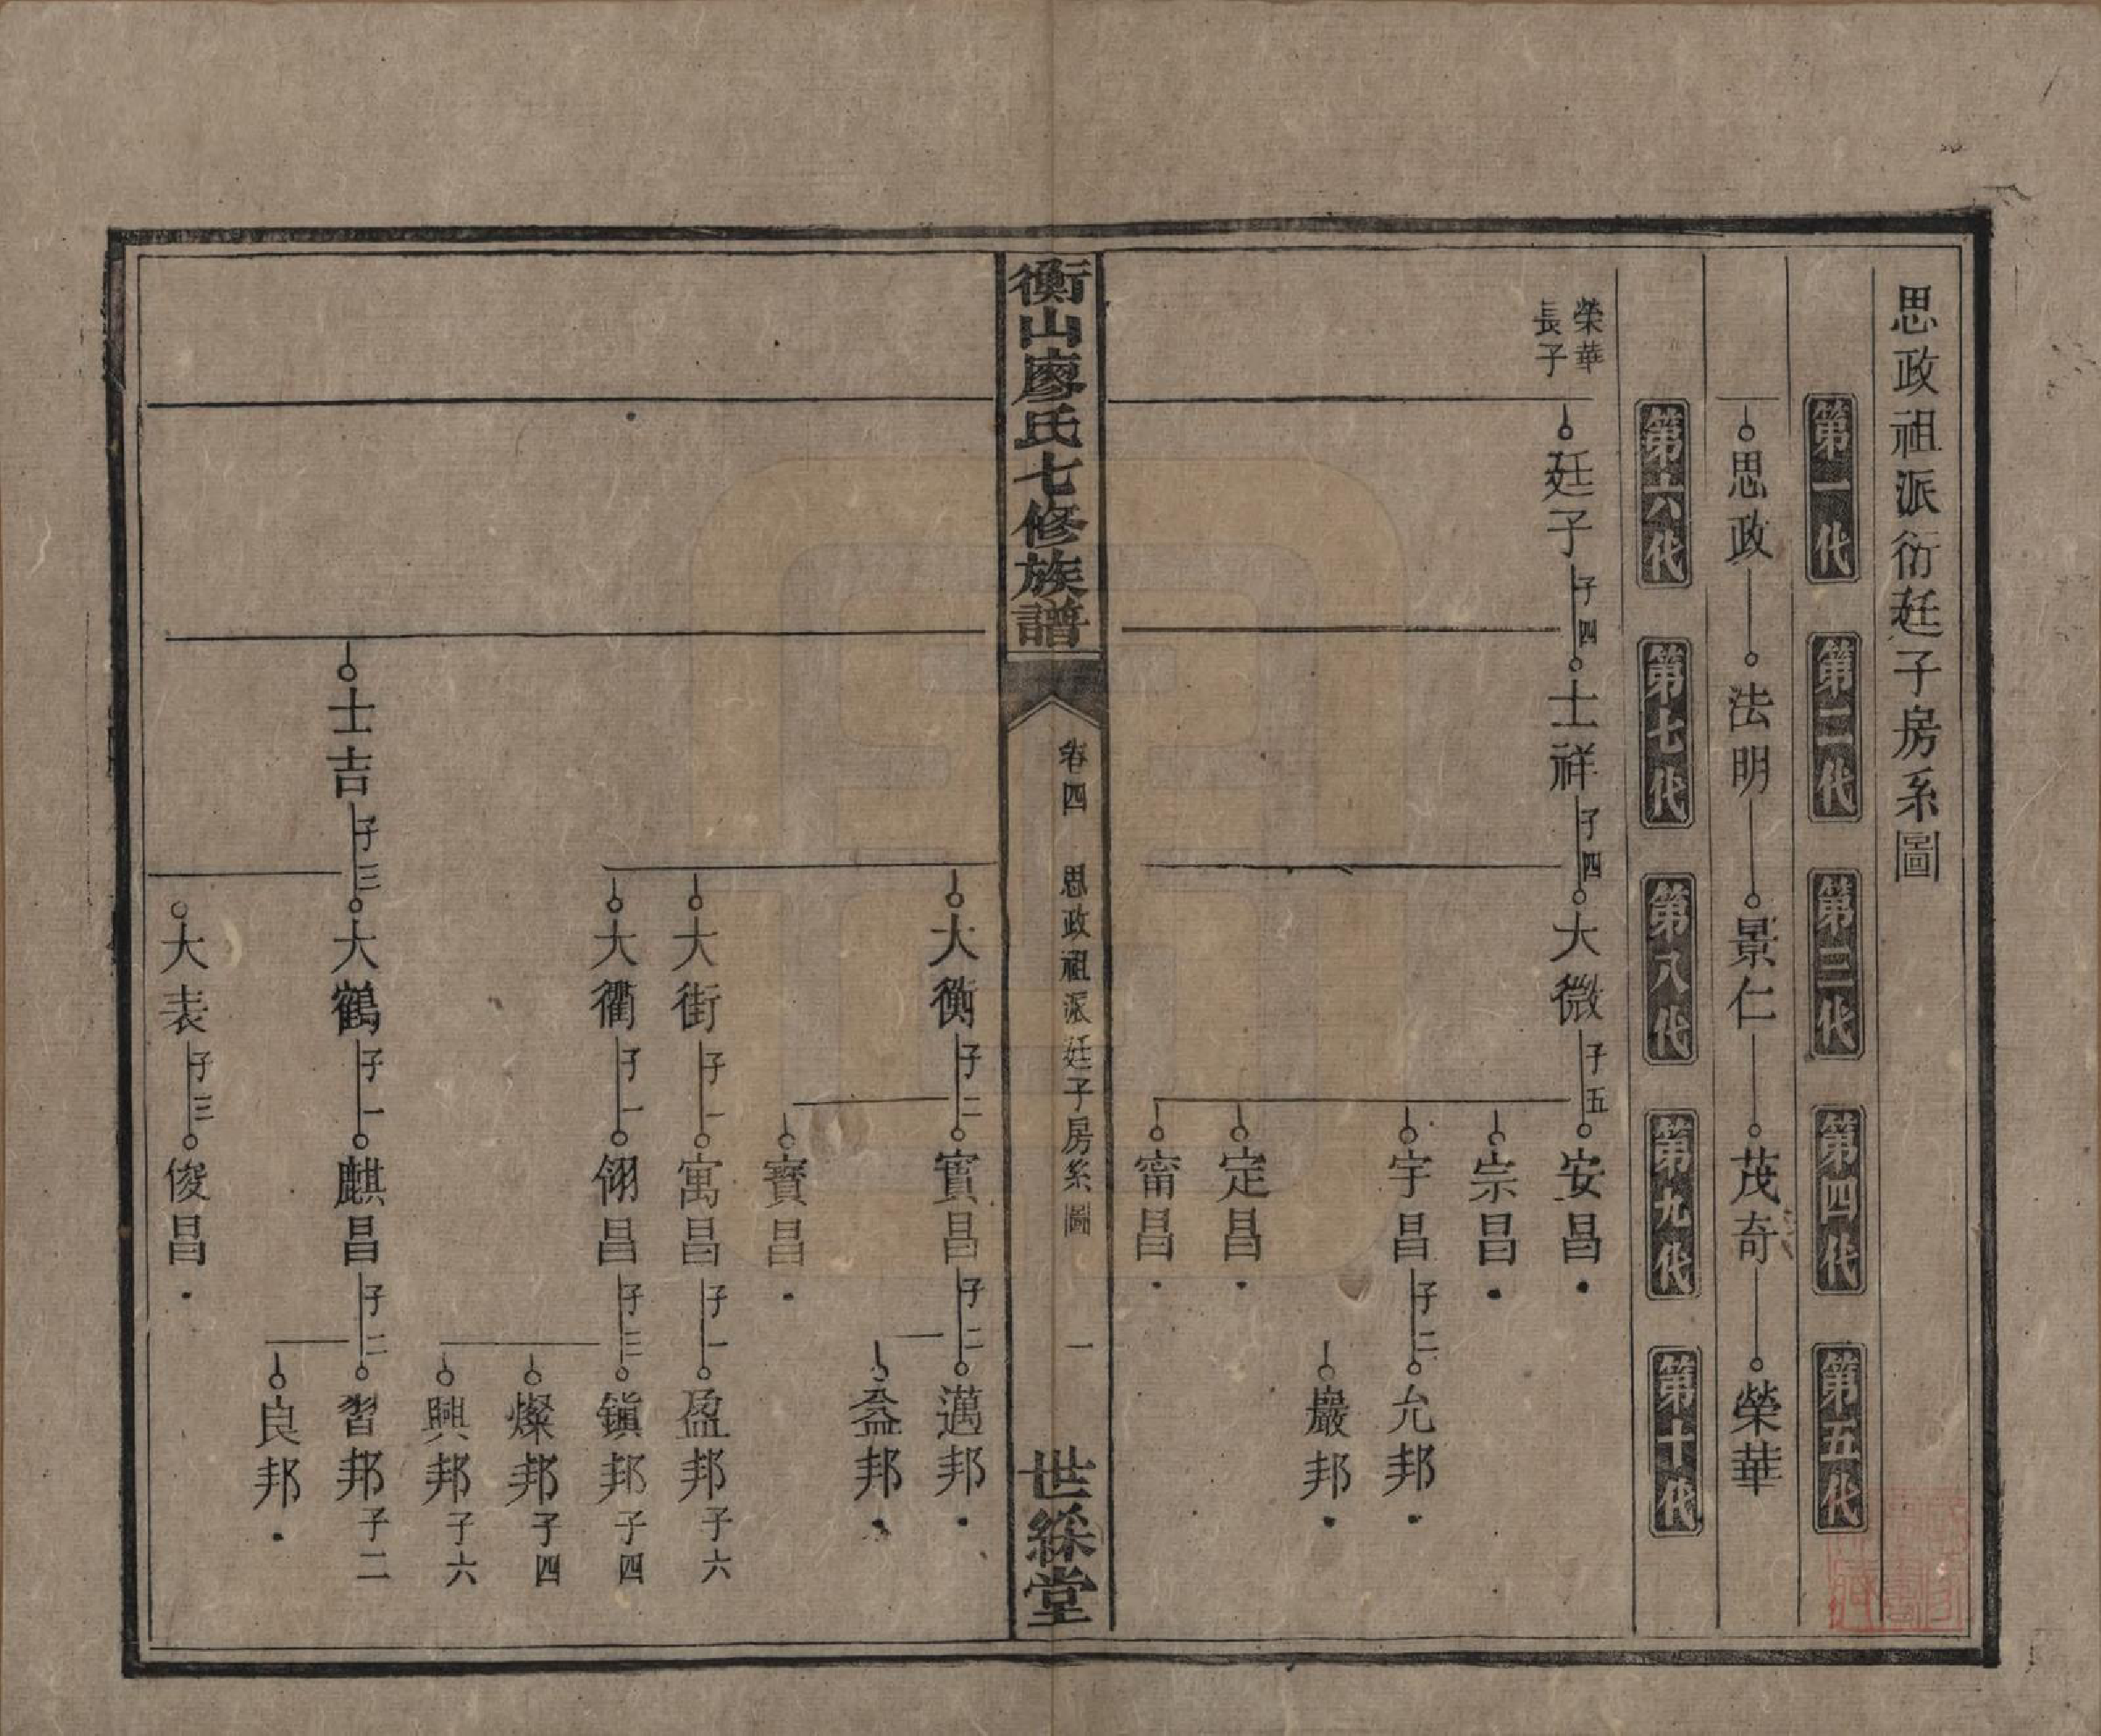 思政祖派衍廷子房系圖
第一代 第二代 第三代 第四代 第五代
思政 法明 景仁 茂奇 榮華
第六代 第七代 第八代 第九代 第十代
榮華
長子
廷子 子四 士祥 子四 大微 子五 安昌
宗昌
宇昌 子二 允邦
巖邦
定昌
甯昌
衡山廖氏七修族譜 卷四 思政祖派廷子房系圖 一 世綵堂
大衡 子二 實昌 子二 邁邦
益邦
寶昌
大街 子一 寓昌 子一 盈邦 子六
大衢 子一 翎昌 子三 鎮邦 子四
燦邦 子四
興邦 子六
士吉 子三 大鶴 子一 麒昌 子二 習邦 子二
良邦
大表 子三 俊昌